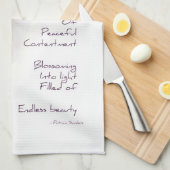 Of
Peaceful
Contentment
Blossoming
Into light
Filled of
Endless beauty